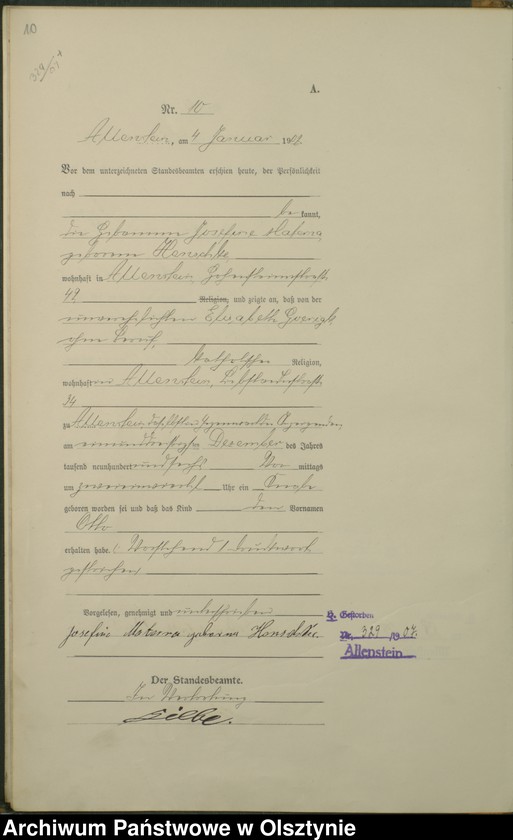 10
329/07
A.
Nr. 10
Allenstein, am 4 Januar 1907.
Vor dem unterzeichneten Standesbeamten erschien heute, der Persönlichkeit
nach
be kannt,
die Hebamme Josefine Materna
geborene Henschke
wohnhaft in Allenstein, Hohensteinerstraße
42, Religion, und zeigte an, daß von der
unverehelichten Elisabeth
ohne Beruf,
katholischer Religion,
wohnhaft in Allenstein, Liebstädterstraße
34
zu Allenstein daselbst in Gegenwart der Anzeigenden,
am einunddreißigsten Dezember des Jahres
tausend neunhundert und sechs Vor mittags
um Uhr ein Knabe
geboren worden sei und daß das Kind den Vornamen
Otto
erhalten habe. Vorstehend 1 Druckwort
gestrichen
Vorgelesen, genehmigt und unterschrieben
Josefine Materna geborene Henschke.
H. Gestorben
Nr. 329 /1907.
Allenstein
Der Standesbeamte.
In Vertretung
Archiwum Państwowe w Olsztynie